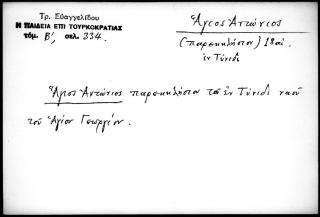 Τρ. Εὐαγγελίδου
Η ΠΑΙΔΕΙΑ ΕΠΙ ΤΟΥΡΚΟΚΡΑΤΙΑΣ
τόμ. Β', σελ. 334.
Ἅγιος Ἀντώνιος
(παρεκκλήσιον) 18αἰ.
ἐν Τύνιδι
Ἅγιος Ἀντώνιος παρεκκλήσιον τοῦ ἐν Τύνιδι ναοῦ
τοῦ Ἁγίου Γεωργίου.